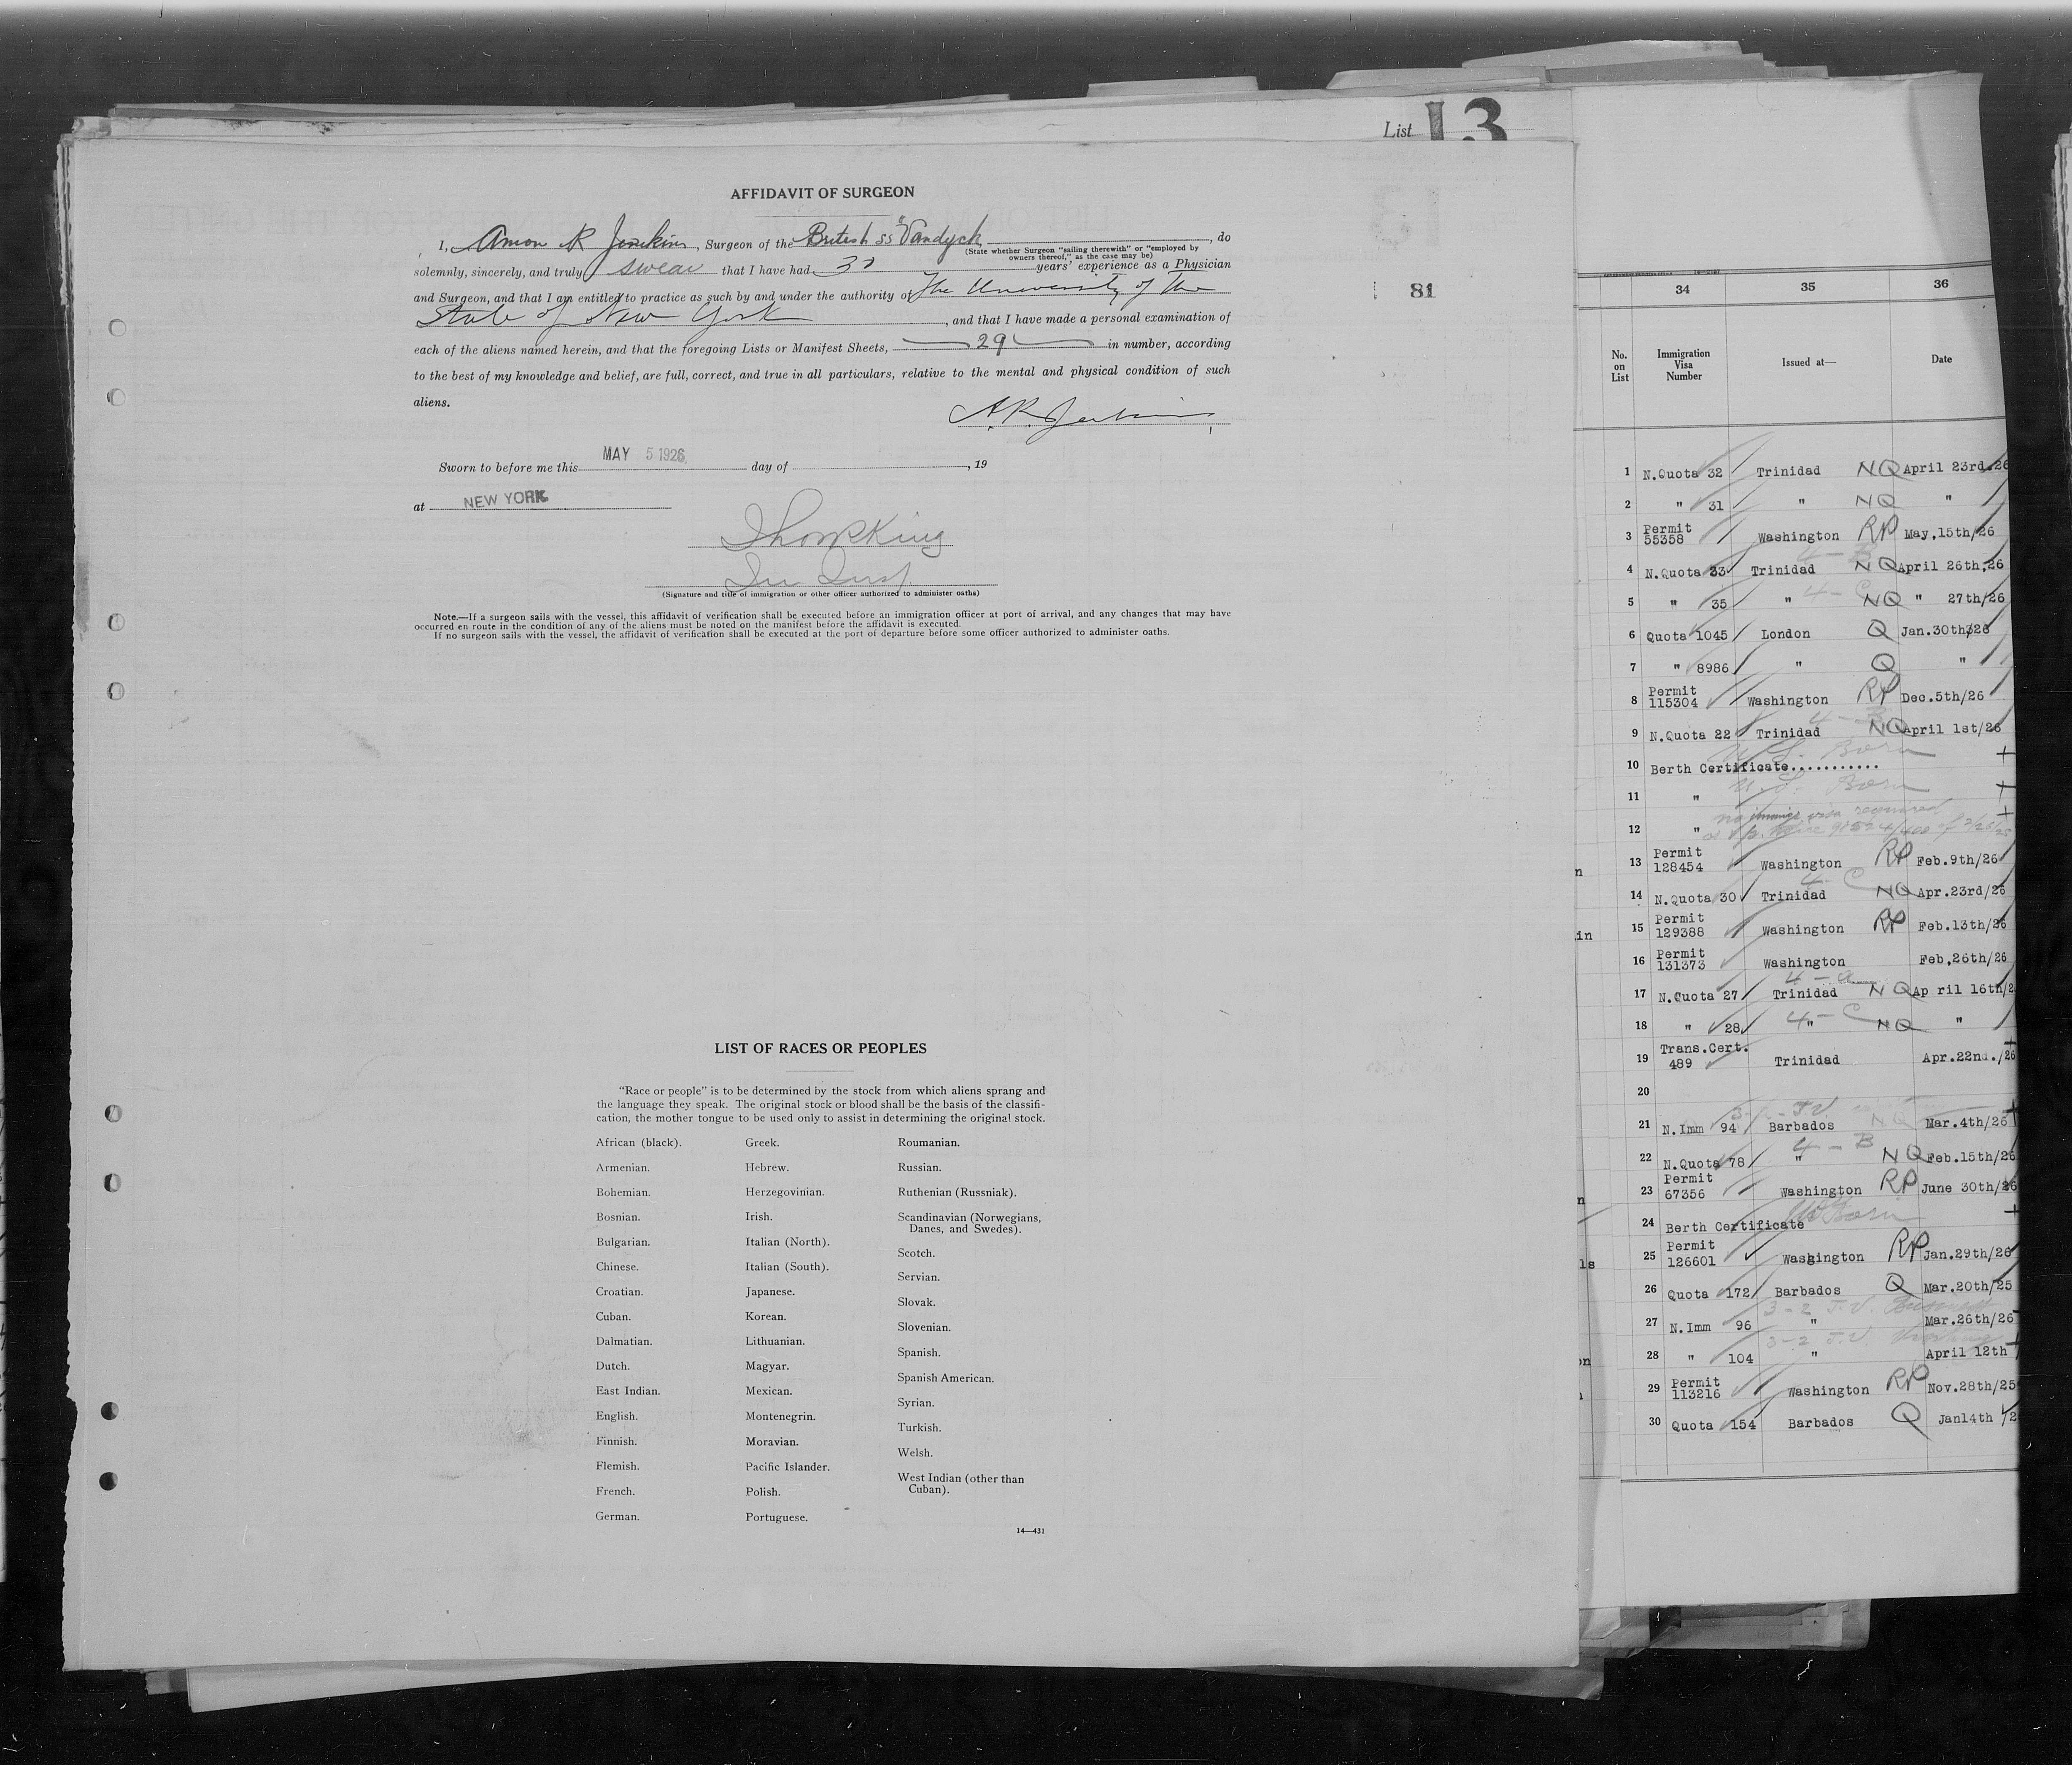 List 13
AFFIDAVIT OF SURGEON
I, Amon R Jenkins, Surgeon of the British ss "Vandyck, do
(State whether Surgeon "sailing therewith" or "employed by
owners thereof," as the case may be)
solemnly, sincerely, and truly swear that I have had years' experience as a Physician
and Surgeon, and that I am entitled to practice as such by and under the authority of The University of The
State of New York, and that I have made a personal examination of
each of the aliens named herein, and that the foregoing Lists or Manifest Sheets, 29 in number, according
to the best of my knowledge and belief, are full, correct, and true in all particulars, relative to the mental and physical condition of such
aliens.
A.R. Jenkins
Sworn to before me this MAY 5 1926 day of , 19
at NEW YORK
(Signature and title of immigration or other officer authorized to administer oaths)
Note.—If a surgeon sails with the vessel, this affidavit of verification shall be executed before an immigration officer at port of arrival, and any changes that may have
occurred en route in the condition of any of the aliens must be noted on the manifest before the affidavit is executed.
If no surgeon sails with the vessel, the affidavit of verification shall be executed at the port of departure before some officer authorized to administer oaths.
81
LIST OF RACES OR PEOPLES
"Race or people" is to be determined by the stock from which aliens sprang and
the language they speak. The original stock or blood shall be the basis of the classifi-
cation, the mother tongue to be used only to assist in determining the original stock.
African (black).
Armenian.
Bohemian.
Bosnian.
Bulgarian.
Chinese.
Croatian.
Cuban.
Dalmatian.
Dutch.
East Indian.
English.
Finnish.
Flemish.
French.
German.
Greek.
Hebrew.
Herzegovinian.
Irish.
Italian (North).
Italian (South).
Japanese.
Korean.
Lithuanian.
Magyar.
Mexican.
Montenegrin.
Moravian.
Pacific Islander.
Polish.
Portuguese.
Roumanian.
Russian.
Ruthenian (Russniak).
Scandinavian (Norwegians,
Danes, and Swedes).
Scotch.
Servian.
Slovak.
Slovenian.
Spanish.
Spanish American.
Syrian.
Turkish.
Welsh.
West Indian (other than
Cuban).
14—431
34 35 36
No. on List Immigration Visa Number Issued at— Date
1 N.Quota 32 Trinidad NQ April 23rd.26
2 " 31 " NQ "
3 Permit 55358 Washington RP May,15th/26
4 N.Quota 33 Trinidad 4 - B NQ April 26th,26
5 " 35 " 4 - C NQ " 27th/26
6 Quota 1045 London Q Jan.30th326
7 " 8986 " Q "
8 Permit 115304 Washington RP Dec.5th/26
9 N.Quota 22 Trinidad 4 - B NQ April 1st/26
10 Berth Certificate........... U.S. Born
11 " U.S. Born
12 " no immig visa required
13 Permit 128454 Washington RP Feb.9th/26
14 N.Quota 30 Trinidad 4 - C NQ Apr.23rd/26
15 Permit 129388 Washington RP Feb.13th/26
16 Permit 131373 Washington Feb,26th/26
17 N.Quota 27 Trinidad NQ Ap ril 16th/2
18 " 28 " 4 - C NQ "
19 Trans.Cert. 489 Trinidad Apr.22nd./26
20
21 N.Imm 94 Barbados NQ Mar.4th/26
22 N.Quota 78 " 4 - B NQ Feb.15th/26
23 Permit 67356 Washington RP June 30th/26
24 Berth Certificate US Born
25 Permit 126601 Washington RP Jan.29th/26
26 Quota 172 Barbados Q Mar.20th/25
27 N.Imm 96 " 3-2 T.V. Mar.26th/26
28 " 104 " 3-2 T.V. April 12th
29 Permit 113216 Washington RP Nov.28th/25
30 Quota 154 Barbados Q Jan14th /2